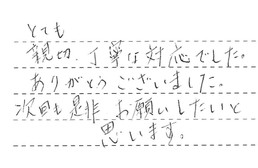 とても
親切、丁寧な対応でした。
ありがとうございました。
次回も是非お願いしたいと
思います。